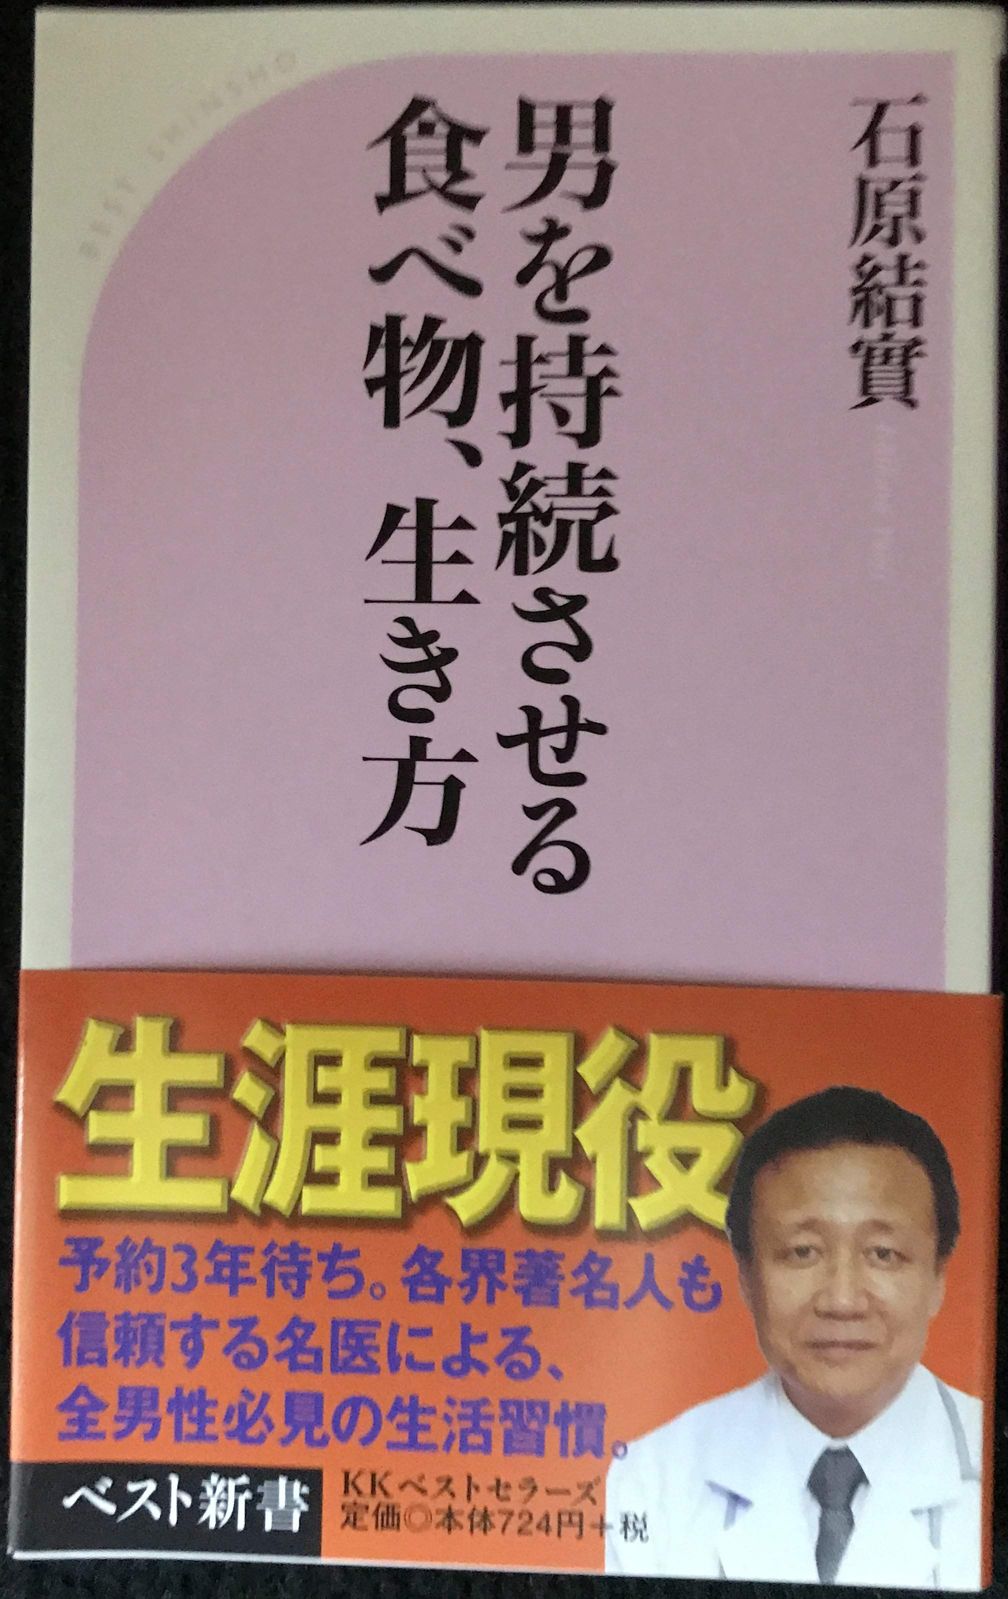 石原結實
男を持続させる
食べ物、生き方
BEST SHINSHO
生涯現役
予約3年待ち。各界著名人も
信頼する名医による、
全男性必見の生活習慣。
ベスト新書
KKベストセラーズ
定価◎本体724円+税